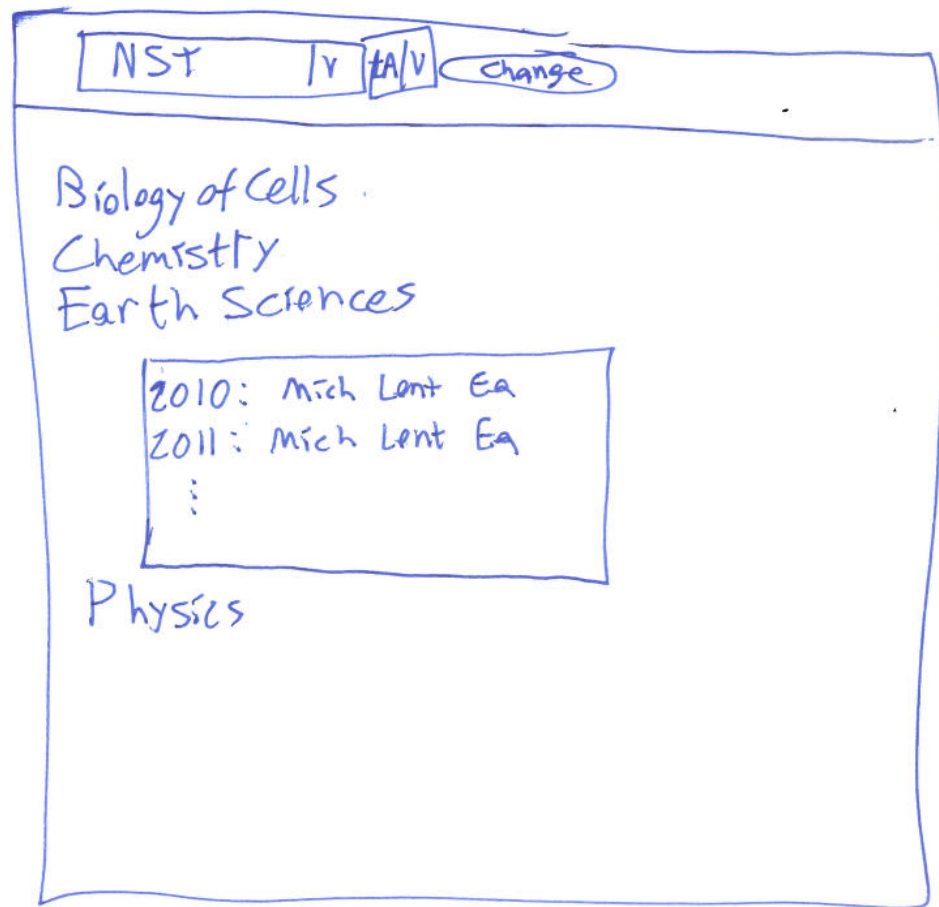 NST v IA v Change
Biology of Cells
Chemistry
Earth Sciences
2010: Mich Lent Ea
2011: Mich Lent Ea
⋮
Physics